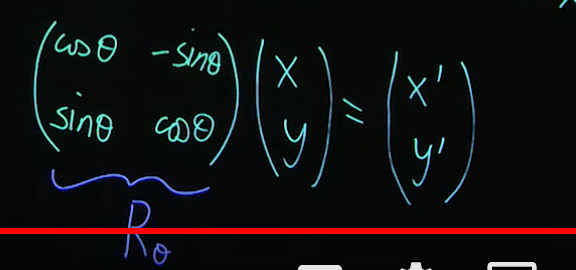 cosθ -sinθ x = x'
sinθ cosθ y y'
Rθ